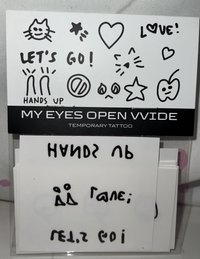 LOVE!
LET'S GO!
HANDS UP
MY EYES OPEN VVIDE
TEMPORARY TATTOO
HANDS UP
LOVE!
LET'S GO!